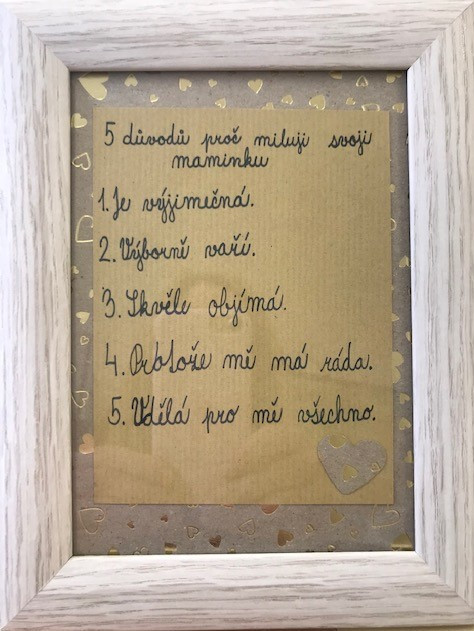 5 důvodů proč miluji svoji
maminku
1. Je výjimečná.
2. Výborně vaří.
3. Skvěle objímá.
4. Protože mě má ráda.
5. Udělá pro mě všechno.